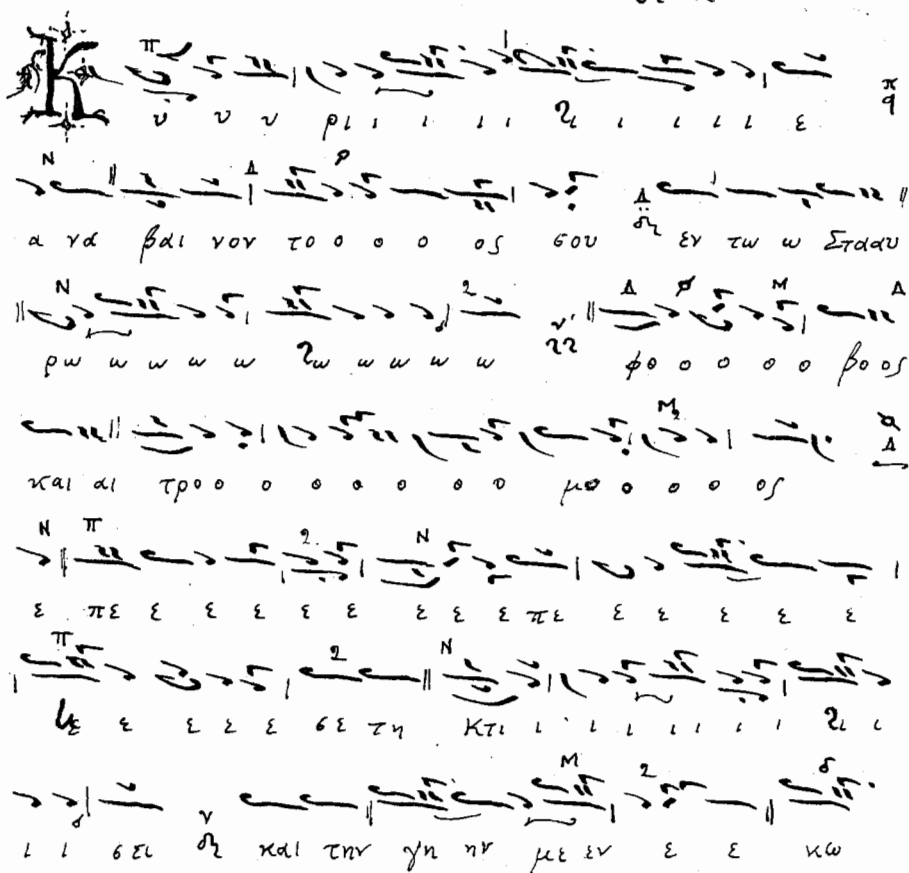 Κ υ υ υ ρι ι ι ι ι ι ι ι ι ι ε
α να βαι νον το ο ο ο ος σου εν τω ω Σταυ
ρω ω ω ω ω ω ω ω ω ω φο ο ο ο ο βο ος
και αι τρο ο ο ο ο ο ο ο μο ο ο ο ος
ε πε ε ε ε ε ε ε ε ε πε ε ε ε ε ε
ε ε ε ε ε σε τη κτι ι ι ι ι ι ι ι ι ι
ι ι στι και την γη ην με εν ε ε κω